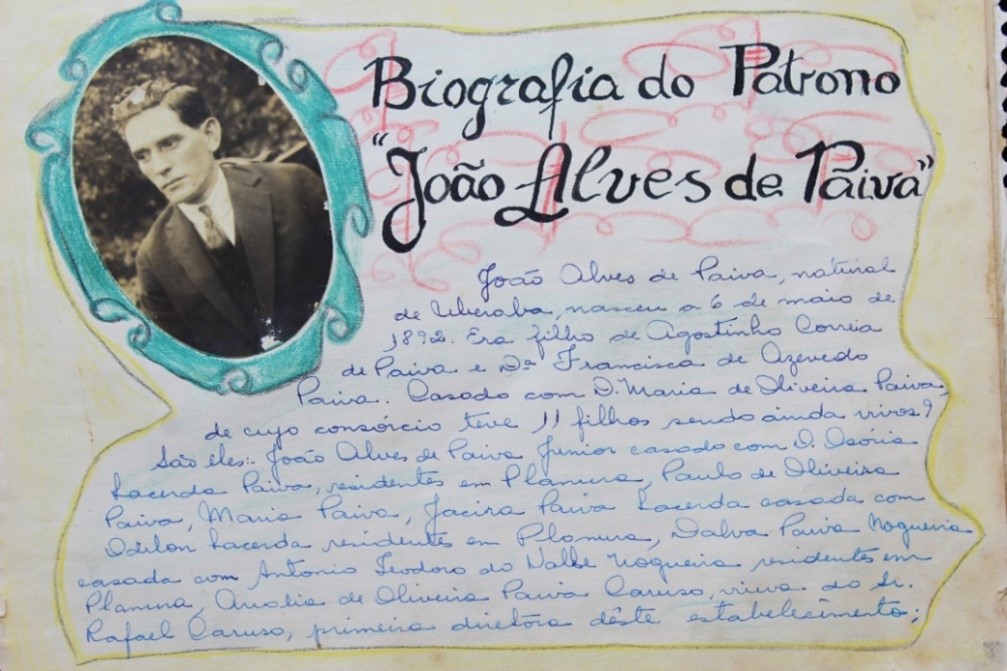 Biografia do Patrono
"João Alves de Paiva"
João Alves de Paiva, natural
de Uberaba, nasceu a 6 de maio de
1892. Era filho de Agostinho Correia
de Paiva e Dª Francisca de Azevedo
Paiva. Casado com D. Maria de Oliveira Paiva,
de cujo consórcio teve 11 filhos sendo ainda vivos 9
São êles: João Alves de Paiva Junior casado com D. Osória
Lacerda Paiva, residentes em Planura, Paulo de Oliveira
Paiva, Maria Paiva, Jacira Paiva Lacerda casada com
Odilon Lacerda residentes em Planura, Dalva Paiva Nogueira
casada com Antonio Teodoro do Valle Nogueira residentes em
Planura, Analia de Oliveira Paiva Caruso, viúva do Sr.
Rafael Caruso, primeira diretora dêste estabelecimento;